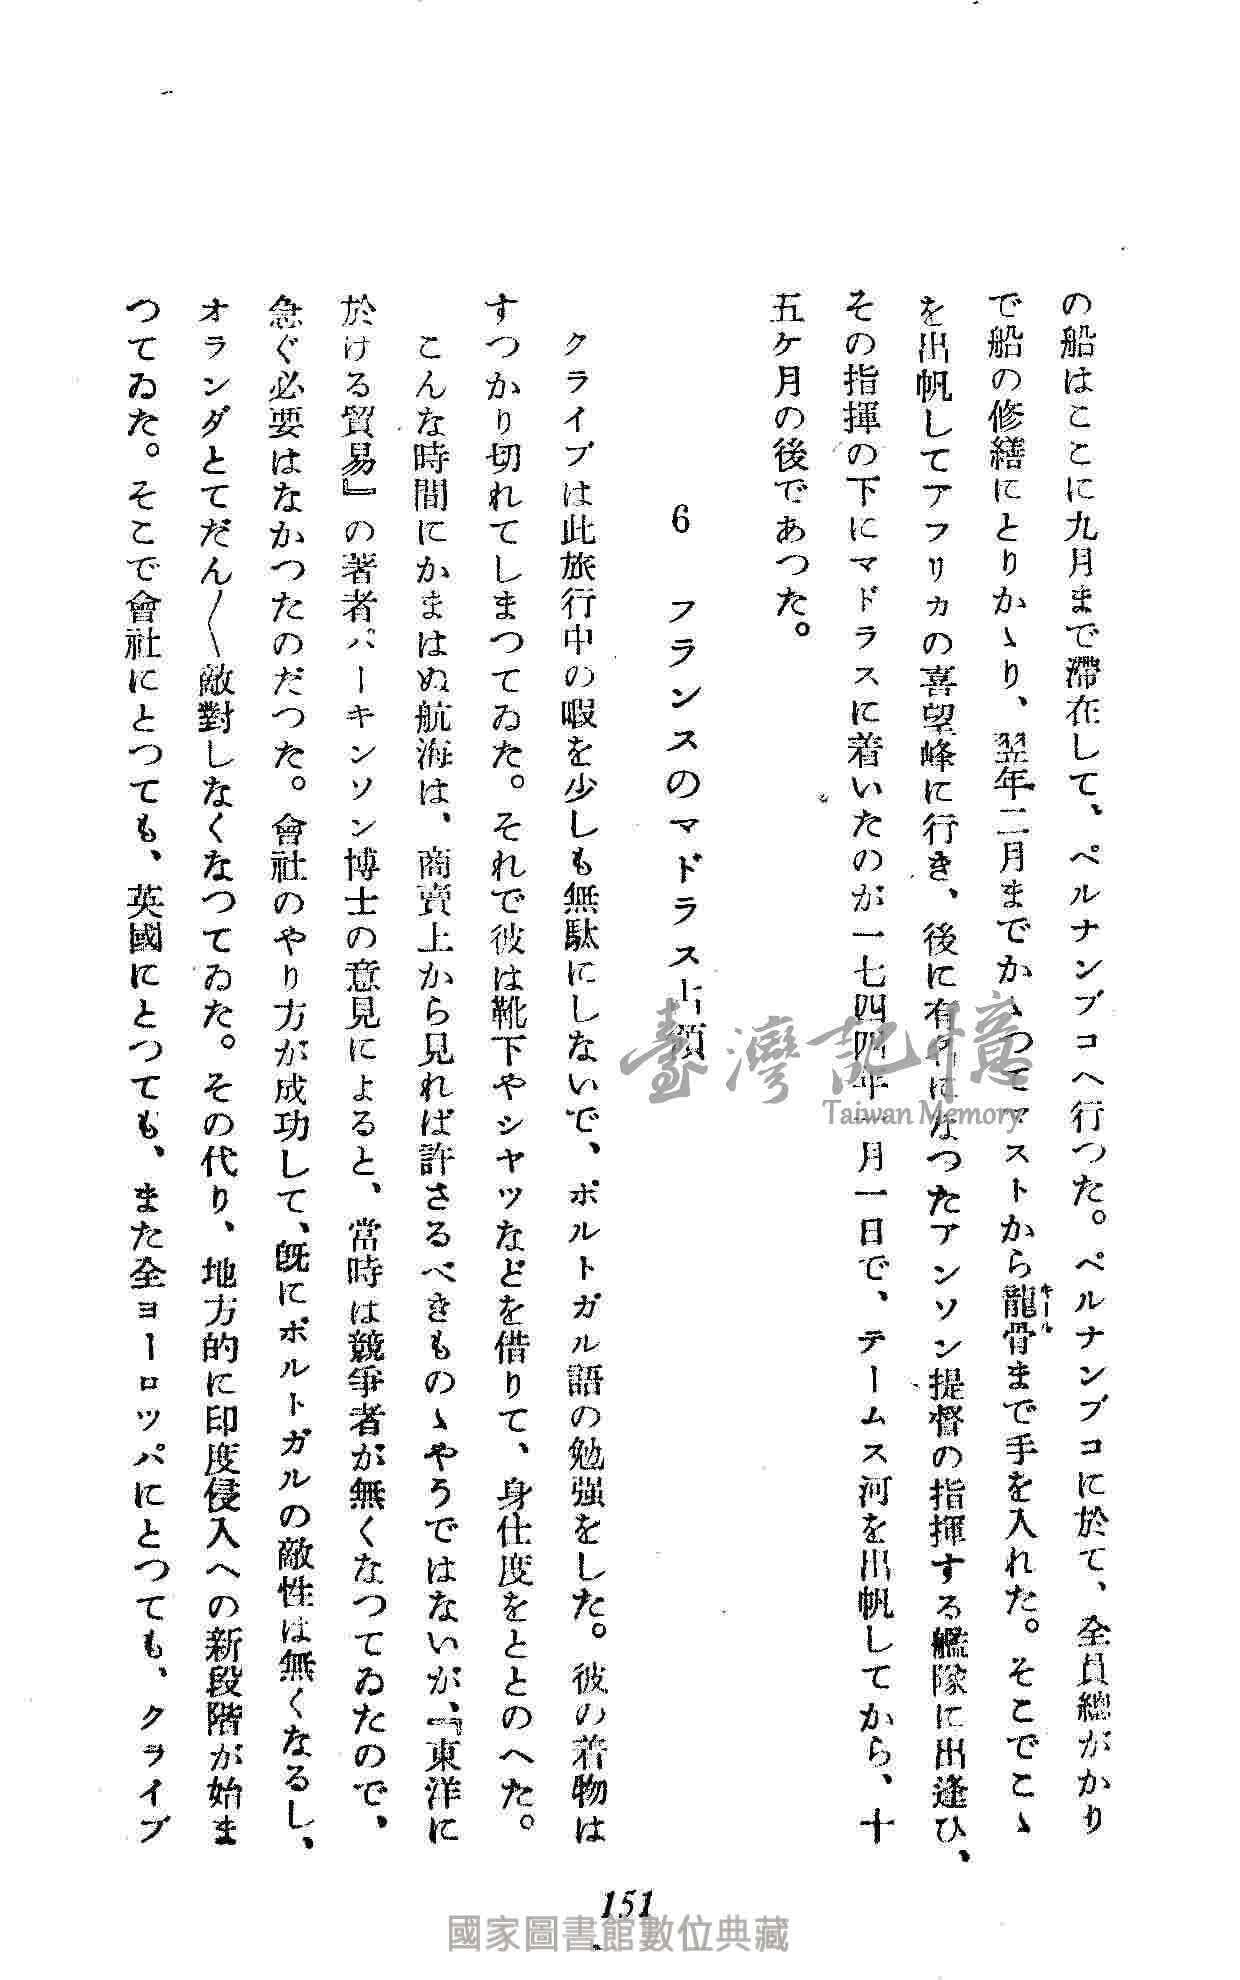 の船はここに九月まで滯在して、ペルナンブコへ行つた。ペルナンブコに於て、全員總がかり
で船の修繕にとりかゝり、翌年二月までかゝつてマストから龍骨まで手を入れた。そこでこゝ
キール
を出帆してアフリカの喜望峰に行き、後に有名になつたアンソン提督の指揮する艦隊に出逢ひ、
その指揮の下にマドラスに着いたのが一七四四年一月一日で、テームス河を出帆してから、十
五ケ月の後であつた。
6 フランスのマドラス占領
クライブは此旅行中の暇を少しも無駄にしないで、ポルトガル語の勉强をした。彼の着物は
すつかり切れてしまつてゐた。それで彼は靴下やシヤツなどを借りて、身仕度をととのへた。
こんな時間にかまはぬ航海は、商賣上から見れば許さるべきものゝやうではないが、『東洋に
於ける貿易』の著者パーキンソン博士の意見によると、當時は競爭者が無くなつてゐたので、
急ぐ必要はなかつたのだつた。會社のやり方が成功して、既にポルトガルの敵性は無くなるし、
オランダとてだん〱敵對しなくなつてゐた。その代り、地方的に印度侵入への新段階が始ま
つてゐた。そこで會社にとつても、英國にとつても、また全ヨーロッパにとつても、クライブ
151
臺灣記憶
Taiwan Memory
國家圖書館數位典藏